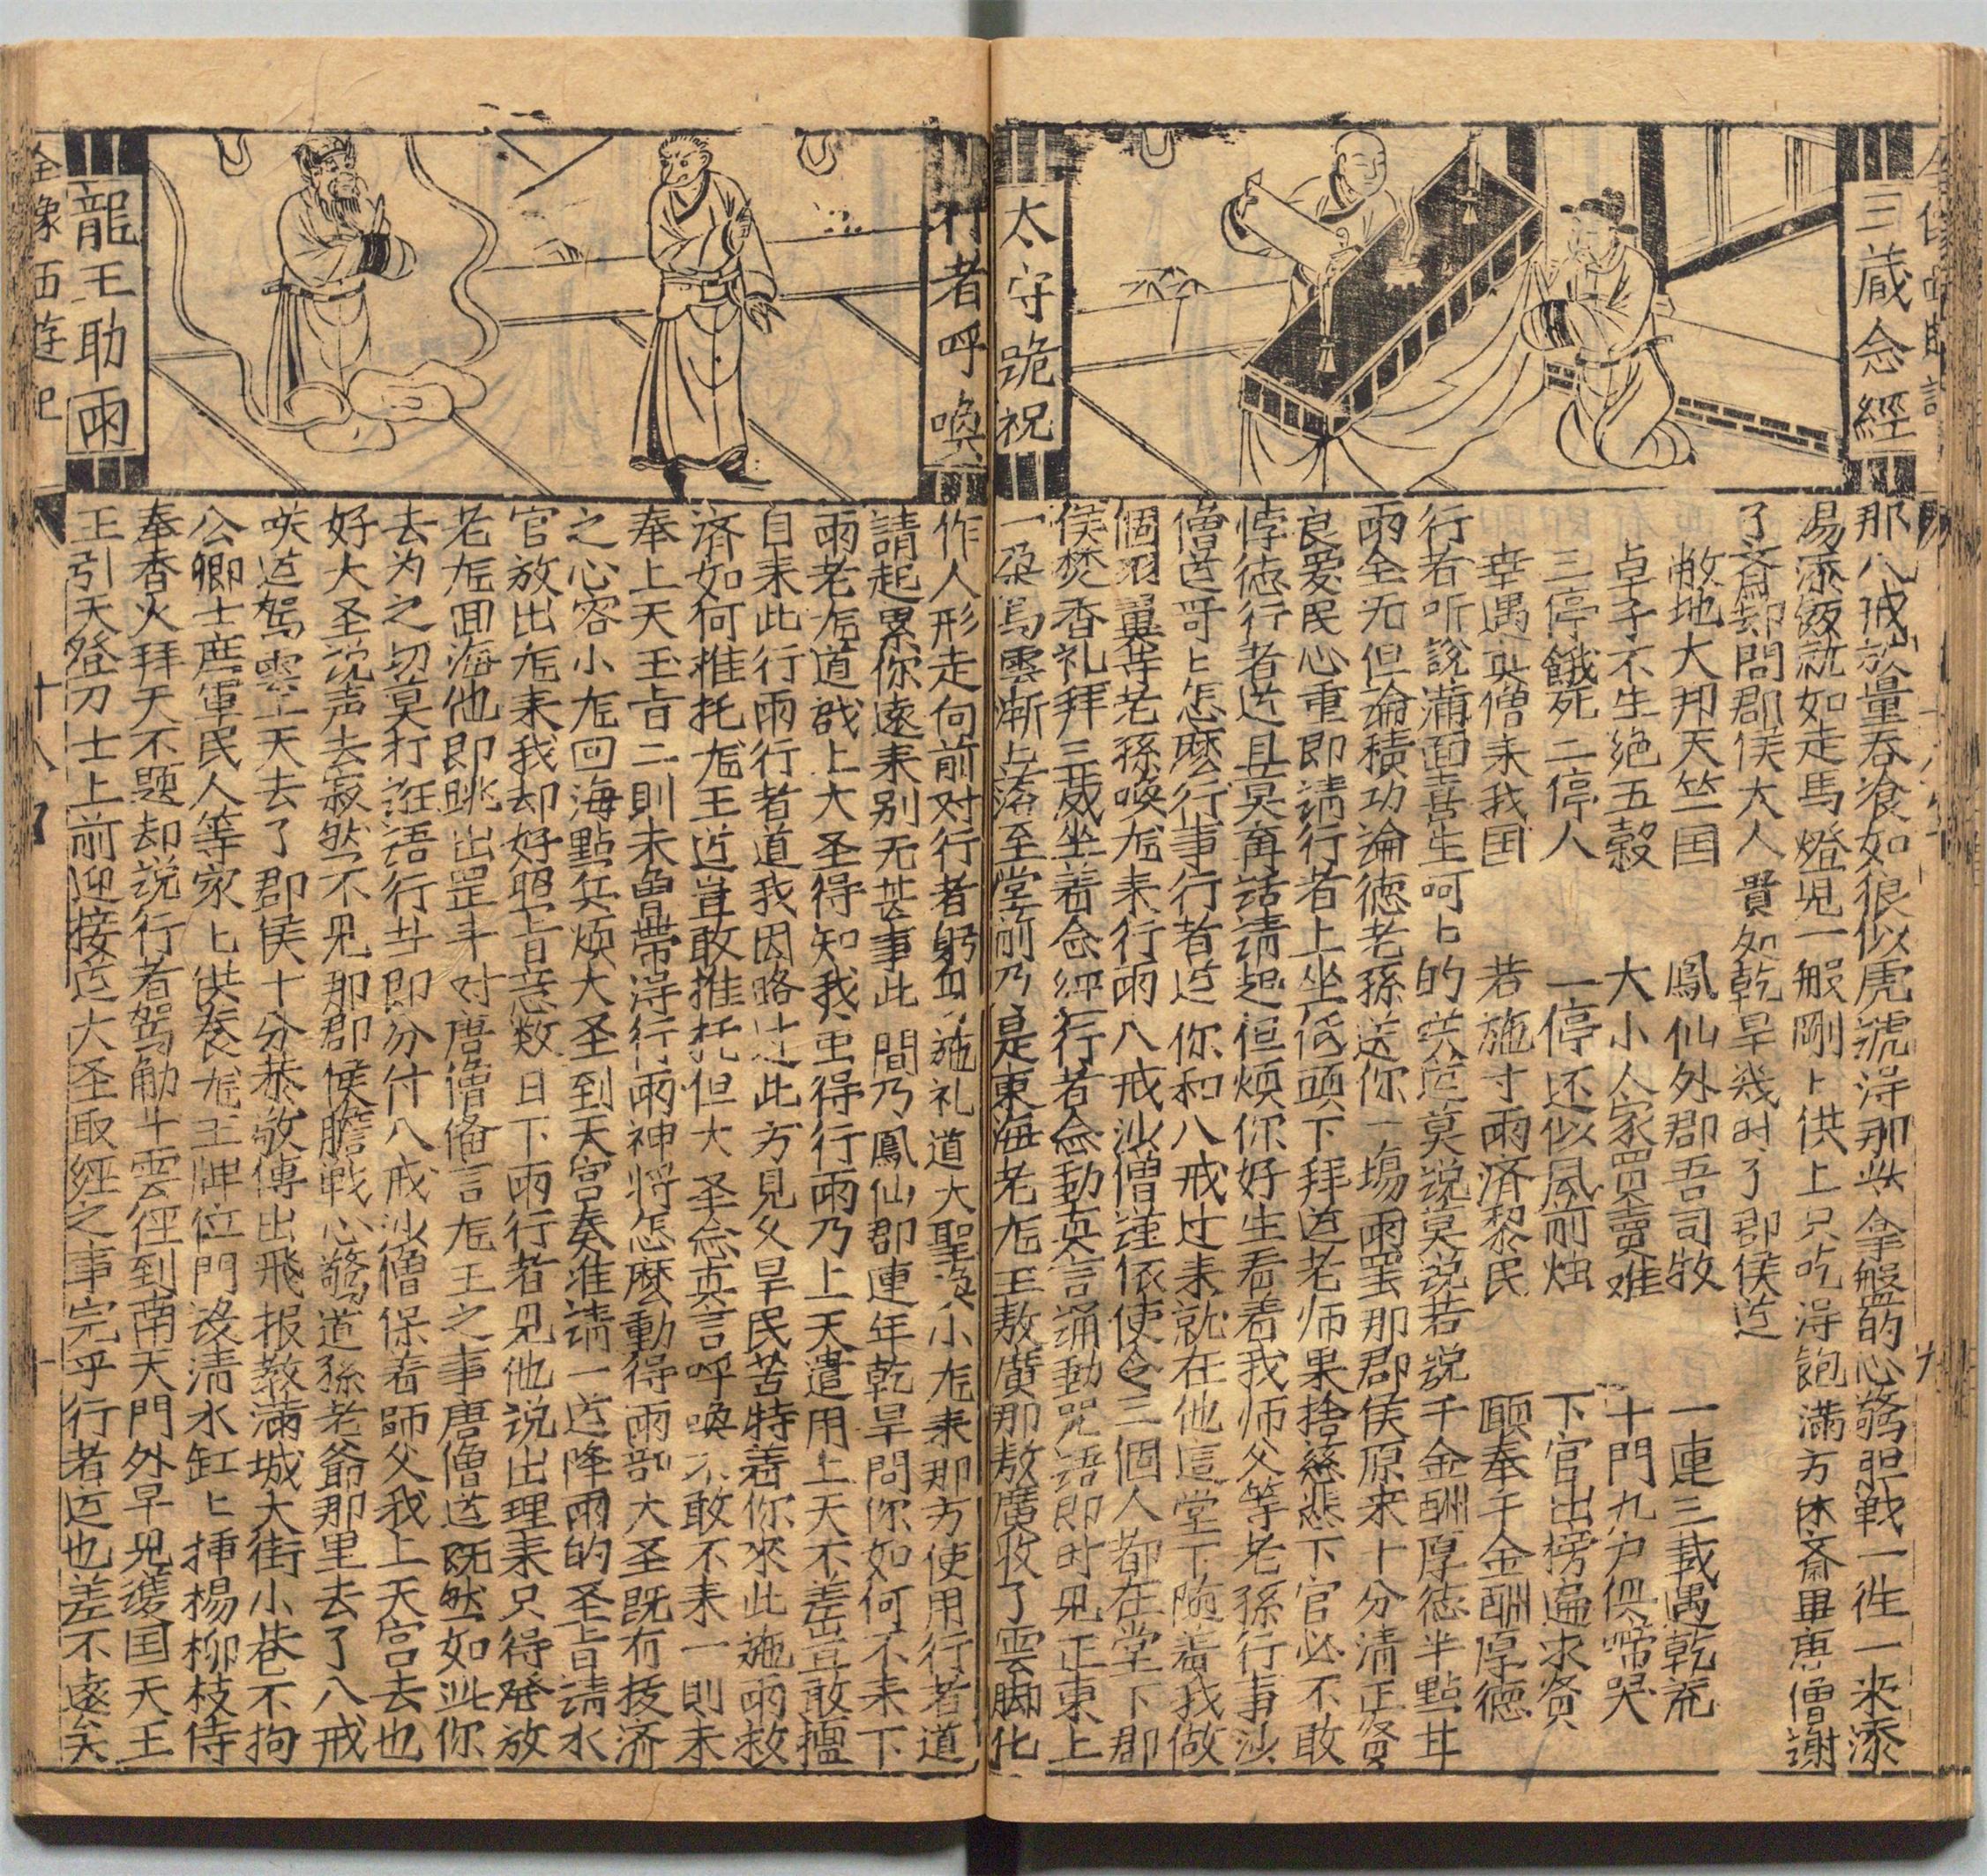 三蔵念經
太守跪祝
那八戒放量吞飡如狼似虎諕得那些拿盤的心驚胆戦一徃一来添
易添飯就如走馬燈児一般剛〻供上只吃得飽満方休齋畢唐僧謝
了齋却問郡侯大人貴処乾旱幾时了郡侯道
敝地大邦天竺国 鳳仙外郡吾司牧 一連三載遇乾荒
卓子不生絶五穀 大小人家買賣难 十門九户俱啼哭
三停餓死二停人 一停还似風前烛 下官出榜遍求贤
幸遇真僧来我国 若施寸雨済黎民 願奉千金酬厚徳
行者听說满面喜生呵〻的咲道莫说莫说若说千金酬厚徳半點甘
雨全无但論積功論徳老孫送你一塲大雨那郡侯原来十分清正贤
良爱民心重即請行者上坐低頭下拜道老师果捨慈悲下官必不敢
悖徳行者道且莫再話請起但煩你好生看着我师父等老孫行事沙
僧道哥〻怎麽行事行者道你和八戒过来就在他這堂下随着我做
個羽翼等老孫喚龙来行雨八戒沙僧謹依使令三個人都在堂下郡
侯焚香礼拜三藏坐着念經行者念動真言誦動咒语即时見正東上
一朶烏雲漸〻落至堂前乃是東海老龙王敖廣那敖廣收了雲脚化
行者呼喚
龍王助雨
作人形走向前对行者躬身施礼道大聖喚小龙来那方使用行者道
請起累你遠来别无甚事此間乃鳳仙郡連年乾旱問你如何不来下
雨老龙道啟上大圣得知我虽得行雨乃上天遣用上天不差豈敢擅
自来此行雨行者道我因路过此方見久旱民苦特着你來此施雨救
済如何推托龙王道豈敢推托但大圣念真言呼喚不敢不来一則未
奉上天玉旨二則未曾帶得行雨神将怎麽動得雨部大圣既有拔济
之心容小龙回海點兵煩大圣到天宮奏准請一道降雨的圣旨請水
官放出龙来我却好照旨意数目下雨行者見他说出理来只得発放
老龙囬海他即跳出罡斗对唐僧俻言龙王之事唐僧道既然如此你
去为之切莫打誑语行者即分付八戒沙僧保着師父我上天宮去也
好大圣说声去寂然不見那郡侯膽戦心驚道孫老爺那里去了八戒
咲道駕雲上天去了郡侯十分恭敬傳出飛报教滿城大街小巷不拘
公卿士庶軍民人等家〻供養龙王牌位門設清水缸〻揷楊柳枝侍
奉香火拜天不题却説行者駕觔斗雲径到南天門外早見護国天王
王引天登刀士上前迎接道大圣取經之事完乎行者道也差不遠矣
全像西遊記
十八